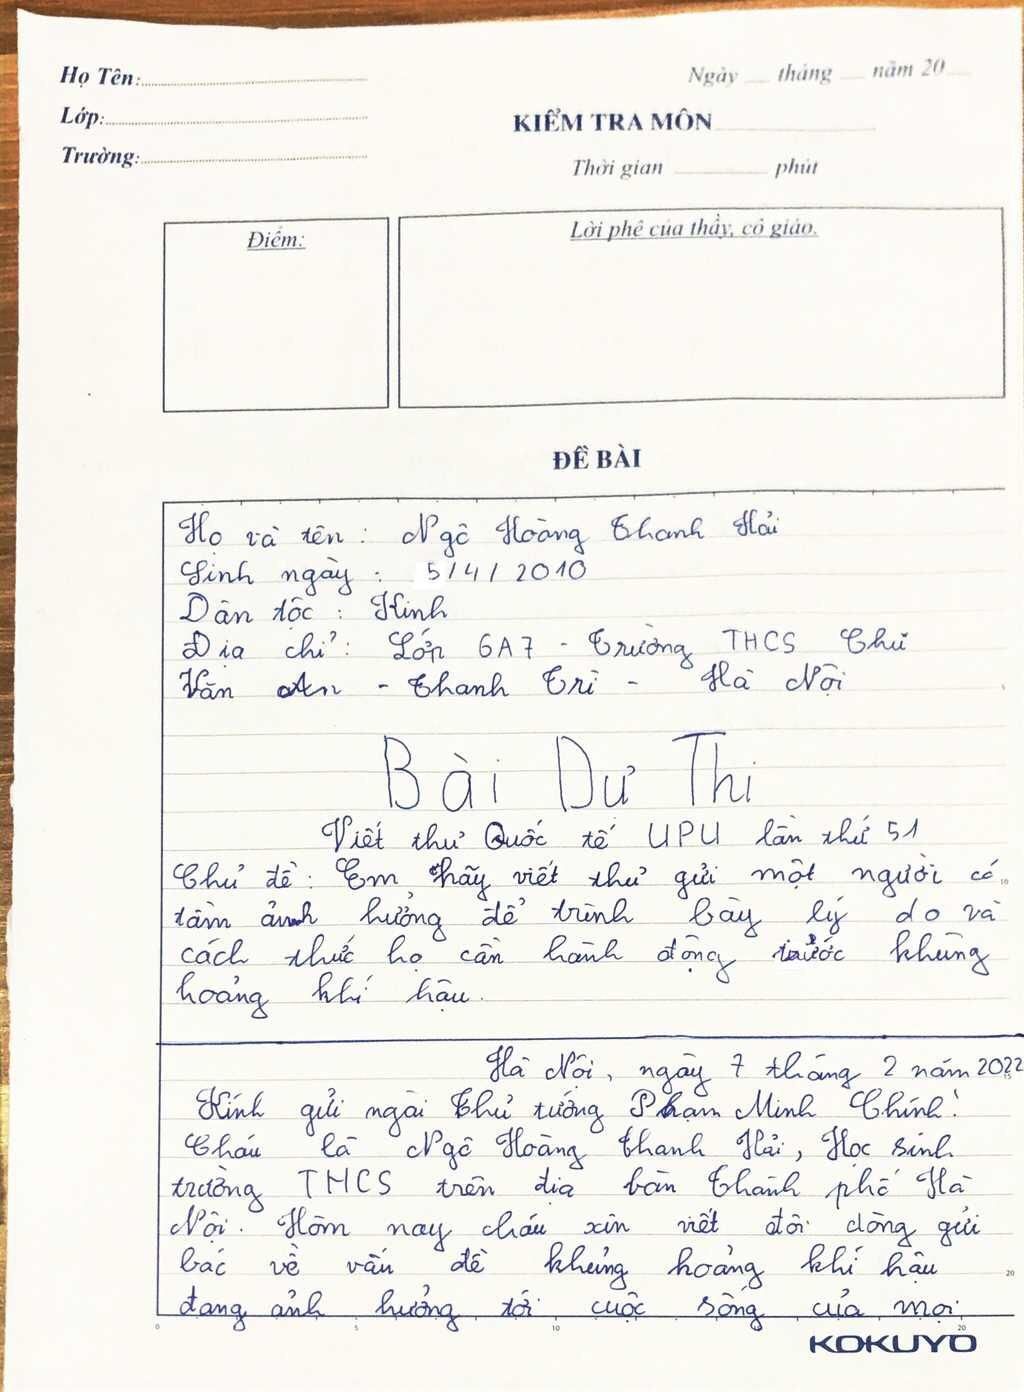 Họ Tên:
Ngày tháng năm 20
Lớp:
KIỂM TRA MÔN
Trường:
Thời gian phút
Điểm:
Lời phê của thầy, cô giáo.
ĐỀ BÀI
Họ và tên : Ngô Hoàng Thanh Hải
Sinh ngày : 5/4/2010
Dân tộc : Kinh
Địa chỉ : Lớp 6A7 - Trường THCS Chu
Văn An - Thanh Trì - Hà Nội
Bài Dự Thi
Viết thư Quốc tế UPU lần thứ 51
Chủ đề : Em hãy viết thư gửi một người có
tầm ảnh hưởng để trình bày lý do và
cách thức họ cần hành động trước khủng
hoảng khí hậu.
Hà Nội, ngày 7 tháng 2 năm 2022
Kính gửi ngài Thủ tướng Phạm Minh Chính!
Cháu là Ngô Hoàng Thanh Hải, Học sinh
trường THCS trên địa bàn Thành phố Hà
Nội. Hôm nay cháu xin viết đôi dòng gửi
bác về vấn đề khủng hoảng khí hậu
đang ảnh hưởng tới cuộc sống của mọi
0 5 10 15 20
KOKUYO